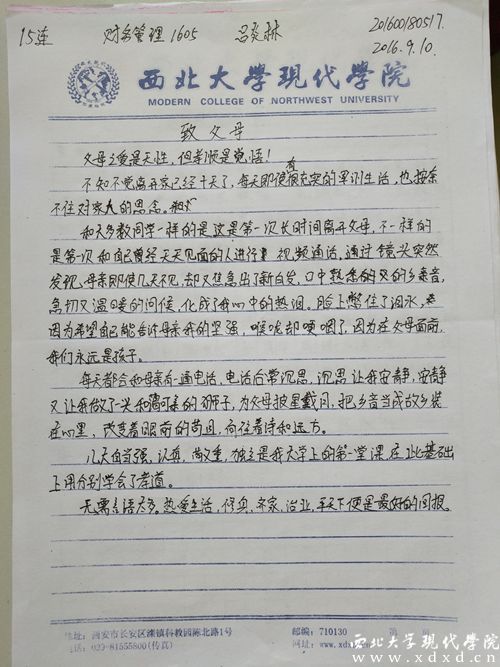 15连 财务管理1605 201600180517.
2016.9.10.
西北大學現代學院
MODERN COLLEGE OF NORTHWEST UNIVERSITY
致父母
父母之爱是天性,但孝顺是觉悟!
不知不觉离开家已经十天了,每天即便有很充实的军训生活,也按奈
不住对家人的思念。
和大多数同学一样的是这是第一次长时间离开父母,不一样的
是第一次和自己曾经天天见面的人进行 视频通话,通过镜头突然
发现,母亲即使几天不见,却又焦急出了新白发,口中熟悉的又的乡秦音,
急切又温暖的问候,化成了我心中的热泪。脸上憋住了泪水,
因为希望自己能告诉母亲我的坚强,喉咙却哽咽了,因为在父母面前,
我们永远是孩子。
每天都会和母亲有一通电话,电话后常沉思,沉思让我安静,安静
又让我做了一头和蔼可亲的狮子,为父母披星戴月,把乡音当成故乡装
在心里,改变着眼前的苟且,向往着诗和远方。
几天由自强、认真、尚敬重,独立是我大学上的第一堂课,在此基础
上用分别学会了孝道。
无需言语太多。热爱生活,修身、齐家、治业、平天下便是最好的回报。
地址:西安市长安区滦镇科教园陈北路1号 邮编:710130
电话:029-81555800(传真) 网址:www.xdxd
西北大學現代學院
www.xdxd.cn